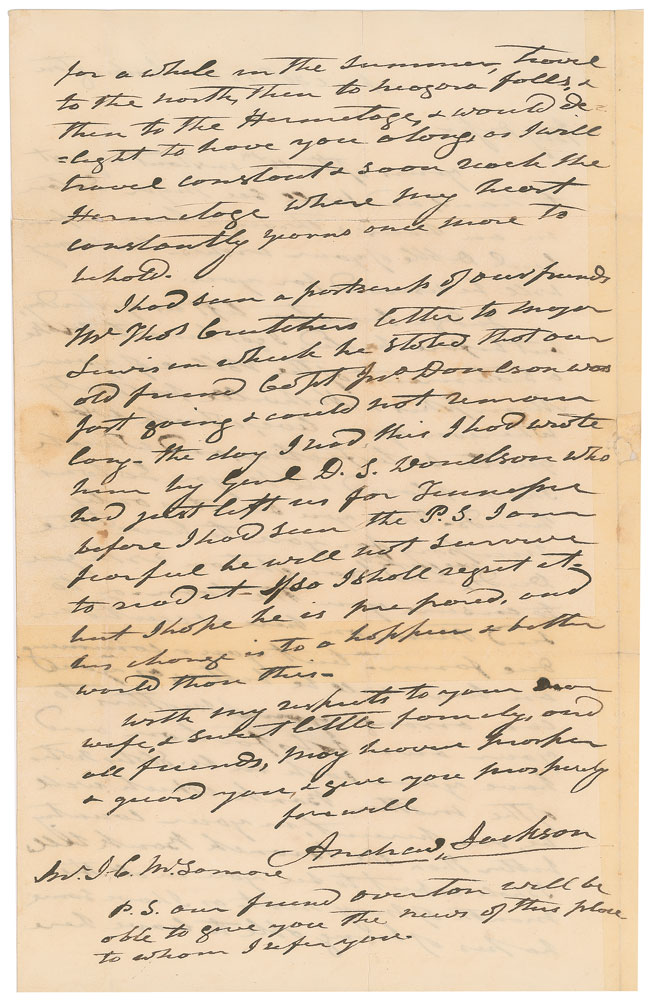 for a while in the summer, travel
to the north, then to niagara falls, &
then to the Hermitage, & would de=
=light to have you along, as I will
travel constant & soon reach the
Hermitage where my heart
constantly yearns once more to
behold.
I had seen a postscrip of our friends
Mr. Thos Crutchers letter to major
Lewis in which he stated that our
old friend Capt Jno. Donelson was
fast going & could not remain
long- the day I read this I had wrote
him by Genl D. S. Donelson who
had just left us for Tennessee
before I had seen the P.S. I am
fearful he will not survive
to read it- If so I shall regret it-
but I hope he is prepared, and
his change is to a happier & better
world than this-
with my respects to your dear
wife, & sweet little family, and
all friends, may heaven prosper
& guard you, & give you prosperity
farewell
Andrew Jackson
Mr. J. C. McLemore
P. S. our friend overton will be
able to give you the news of this place
to whom I refer you.